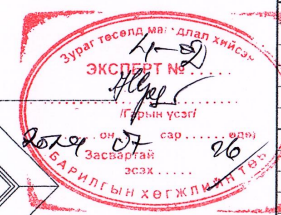 Зураг төсөлд магадлал хийсэн
ЭКСПЕРТ № 4-2
/Гарын үсэг/
2024 он 07 сар 26 өдөр
Засвартай
эсэх
БАРИЛГЫН ХӨГЖЛИЙН ТӨВ